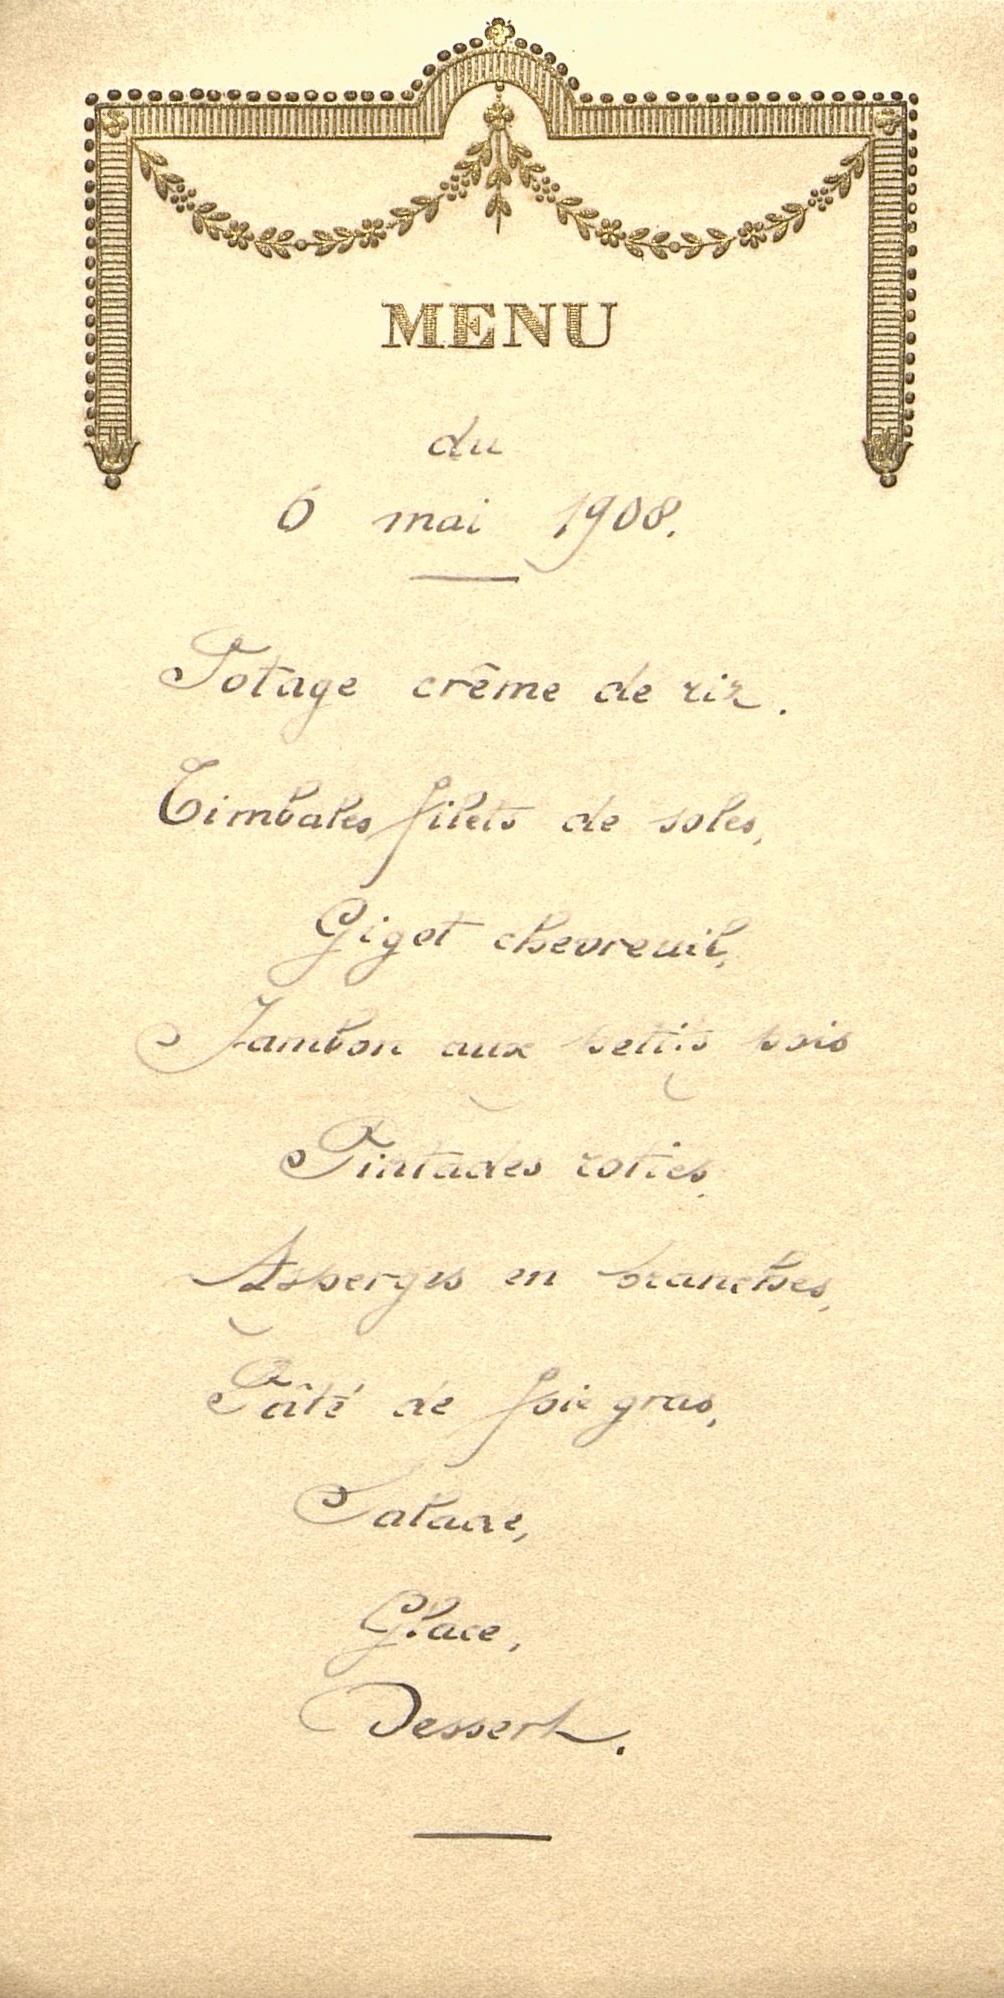 MENU
du
6 mai 1908.
Potage crême de riz.
Timbales filets de soles,
Gigot chevreuil,
Jambon aux pettis pois
Pintades roties,
Asperges en branches,
Pâté de foie gras,
Salade,
Glace,
Dessert.